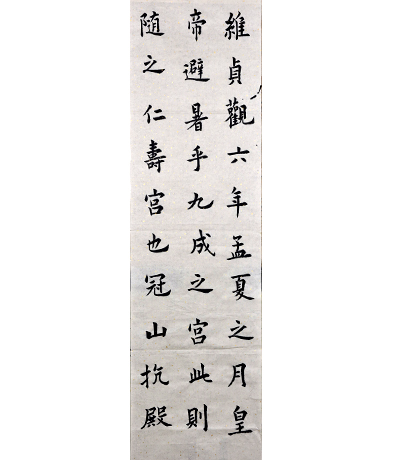 維貞觀六年孟夏之月皇
帝避暑乎九成之宮此則
随之仁壽宮也冠山抗殿